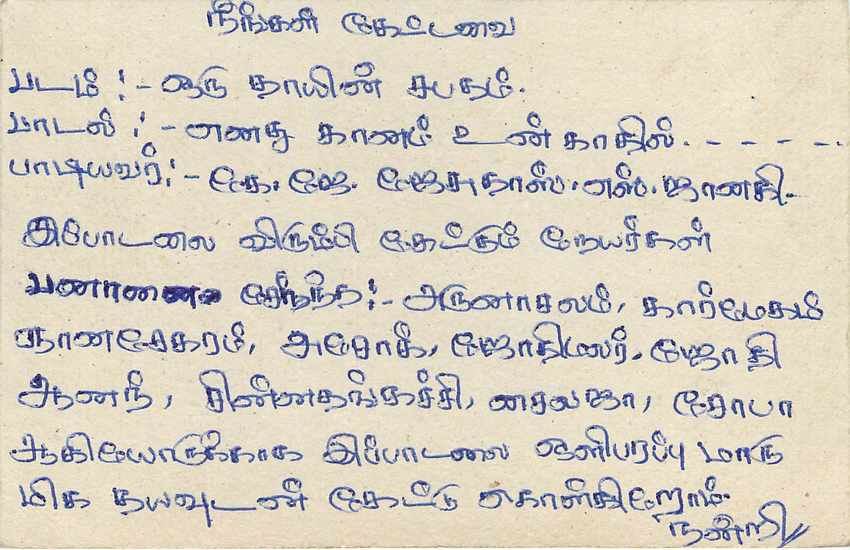 நீங்கள் கேட்டவை
படம் :- ஒரு தாயின் சபதம்.
பாடல் :- எனது கானம் உன் காதில். - - - - -.
பாடியவர் :- கே. ஜே. ஜேசுதாஸ். எஸ். ஜானகி.
இப்பாடலை விரும்பி கேட்டும் நேயர்கள்
சேர்ந்த :- அருனாசலம், கார்மேகம்
ஞானசேகரம், அசோக், ஜோதிமலர், ஜோதி
ஆனந், சின்னதங்கச்சி, சைலஜா, சோபா
ஆகியோருக்காக இப்பாடலை ஒளிபரப்பு மாரு
மிக தயவுடன் கேட்டு கொள்கிறோம்.
நன்றி